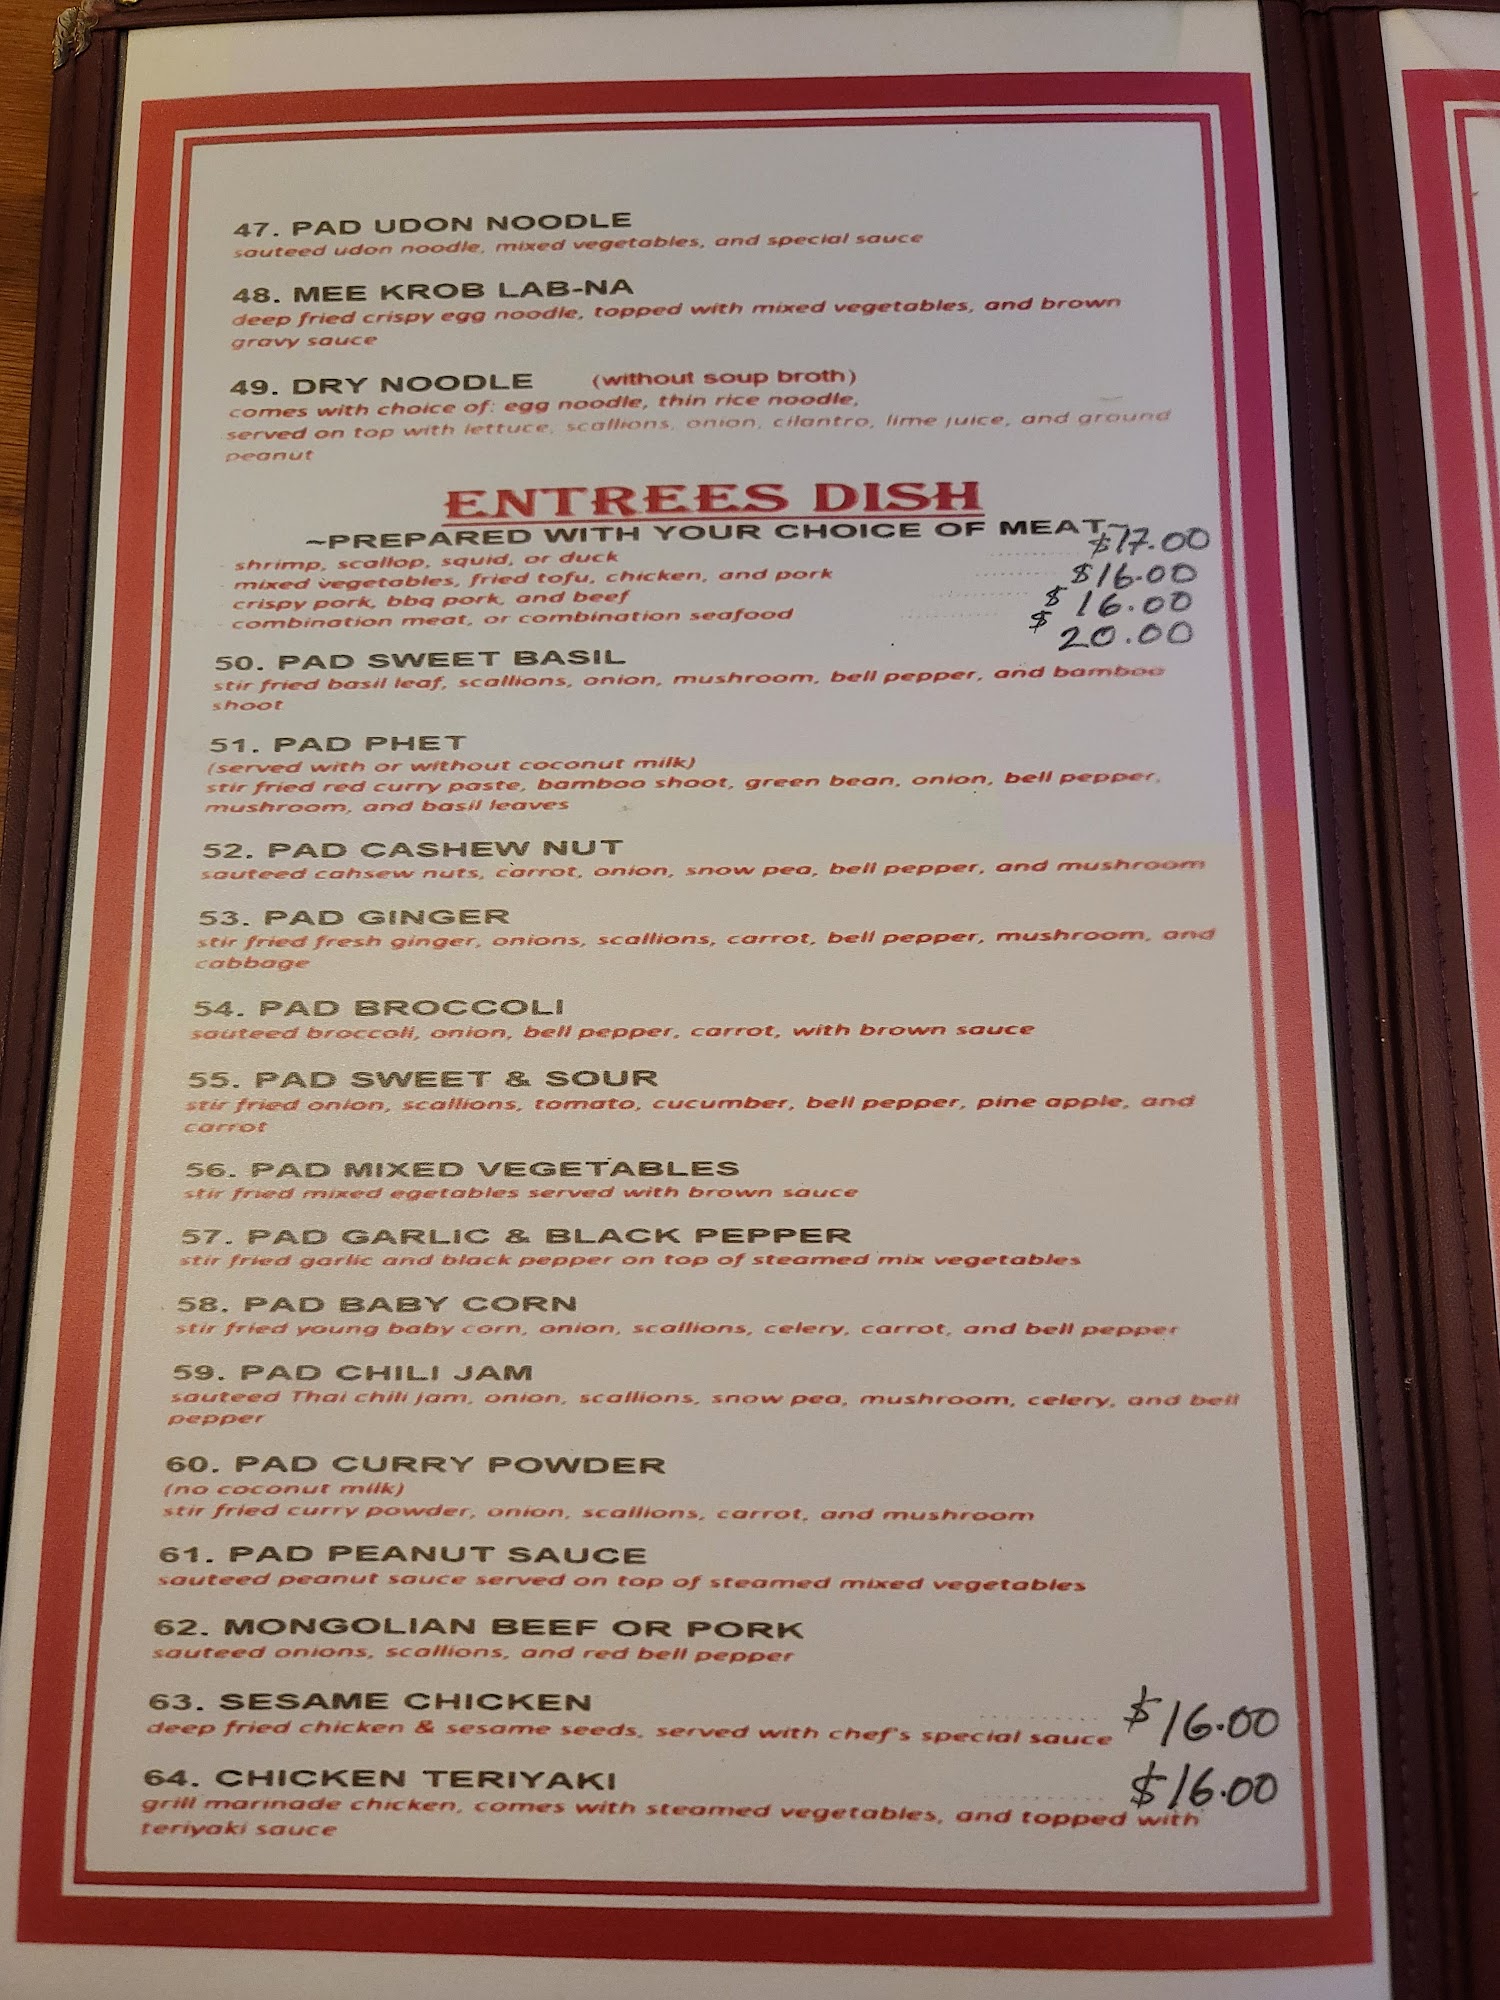 47. PAD UDON NOODLE
sauteed udon noodle, mixed vegetables, and special sauce
48. MEE KROB LAB-NA
deep fried crispy egg noodle, topped with mixed vegetables, and brown
gravy sauce
49. DRY NOODLE (without soup broth)
comes with choice of: egg noodle, thin rice noodle,
served on top with lettuce, scallions, onion, cilantro, lime juice, and ground
peanut
ENTREES DISH
~PREPARED WITH YOUR CHOICE OF MEAT~
shrimp, scallop, squid, or duck $17.00
mixed vegetables, fried tofu, chicken, and pork $16.00
crispy pork, bbq pork, and beef $16.00
combination meat, or combination seafood $20.00
50. PAD SWEET BASIL
stir fried basil leaf, scallions, onion, mushroom, bell pepper, and bamboo
shoot
51. PAD PHET
(served with or without coconut milk)
stir fried red curry paste, bamboo shoot, green bean, onion, bell pepper,
mushroom, and basil leaves
52. PAD CASHEW NUT
sauteed cahsew nuts, carrot, onion, snow pea, bell pepper, and mushroom
53. PAD GINGER
stir fried fresh ginger, onions, scallions, carrot, bell pepper, mushroom, and
cabbage
54. PAD BROCCOLI
sauteed broccoli, onion, bell pepper, carrot, with brown sauce
55. PAD SWEET & SOUR
stir fried onion, scallions, tomato, cucumber, bell pepper, pine apple, and
carrot
56. PAD MIXED VEGETABLES
stir fried mixed egetables served with brown sauce
57. PAD GARLIC & BLACK PEPPER
stir fried garlic and black pepper on top of steamed mix vegetables
58. PAD BABY CORN
stir fried young baby corn, onion, scallions, celery, carrot, and bell pepper
59. PAD CHILI JAM
sauteed Thai chili jam, onion, scallions, snow pea, mushroom, celery, and bell
pepper
60. PAD CURRY POWDER
(no coconut milk)
stir fried curry powder, onion, scallions, carrot, and mushroom
61. PAD PEANUT SAUCE
sauteed peanut sauce served on top of steamed mixed vegetables
62. MONGOLIAN BEEF OR PORK
sauteed onions, scallions, and red bell pepper
63. SESAME CHICKEN $16.00
deep fried chicken & sesame seeds, served with chef's special sauce
64. CHICKEN TERIYAKI $16.00
grill marinade chicken, comes with steamed vegetables, and topped with
teriyaki sauce